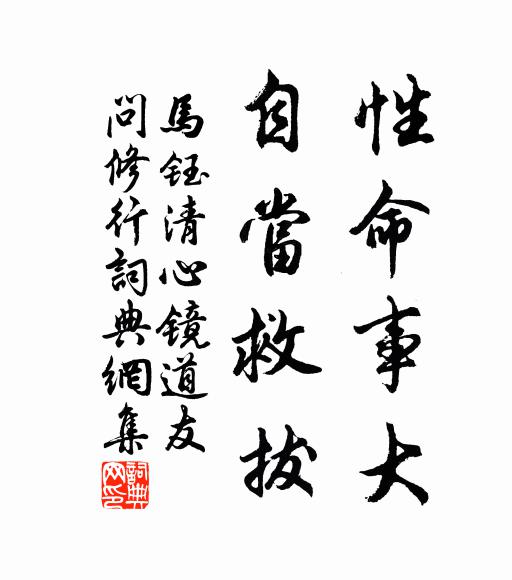 性命事大
自當救拔
馬鈺清心镜道友
問修行詞典網集
詞典網印